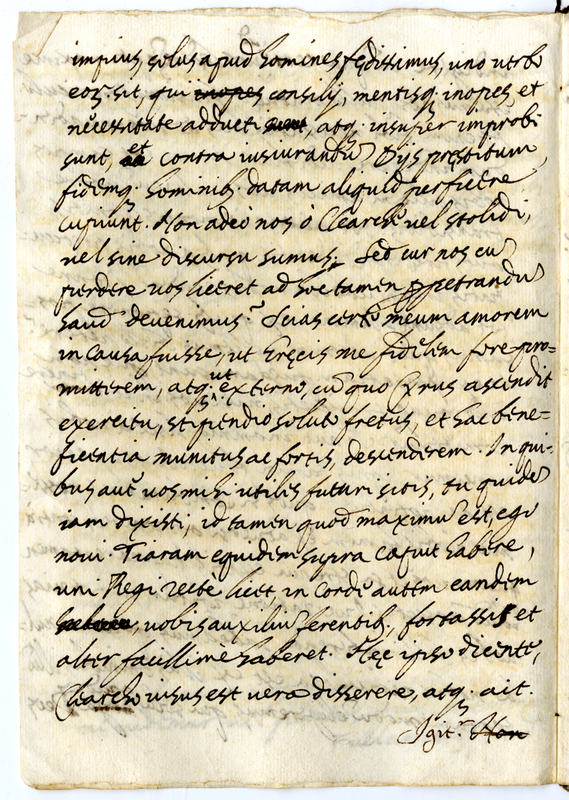 impius, solus apud homines fędissimus, uno verbo
eor. sit, qui inopes consilij, mentisq. inopes, et
necessitate adducti sunt, atq. insuper improbi
sunt, et contra iusiurandū Dijs pręstitum,
fidemq. hominib. datam aliquid perficere
cupiunt. Non adeò nos ò Clearche vel stolidi,
vel sine discursu sumus. Sed cur nos cū
perdere vos liceret ad hoc tamen ppetrandū
haud devenimus? Scias certè meum amorem
in causa fuisse, ut Gręcis me fidelem fore pro=
mitterem, atq. ut externo, cū quo Cyrus ascendit
exercitu, stipendio soluto fretus, et hac bene=
ficentia munitus ac fortis, descenderem. In qui=
bus aut. vos mihi utiles futuri sitis, tu quidē
iam dixisti, id tamen quod maximū est, ego
novi. Tiaram equidem supra caput habere,
uni Regi rectè licet, in corde autem eandem
, vobis auxiliū ferentib., fortassis et
alter facillimè haberet. Hęc ipso dicente,
Clearcho visus est vera disserere, atq. ait.
Igit.r Non